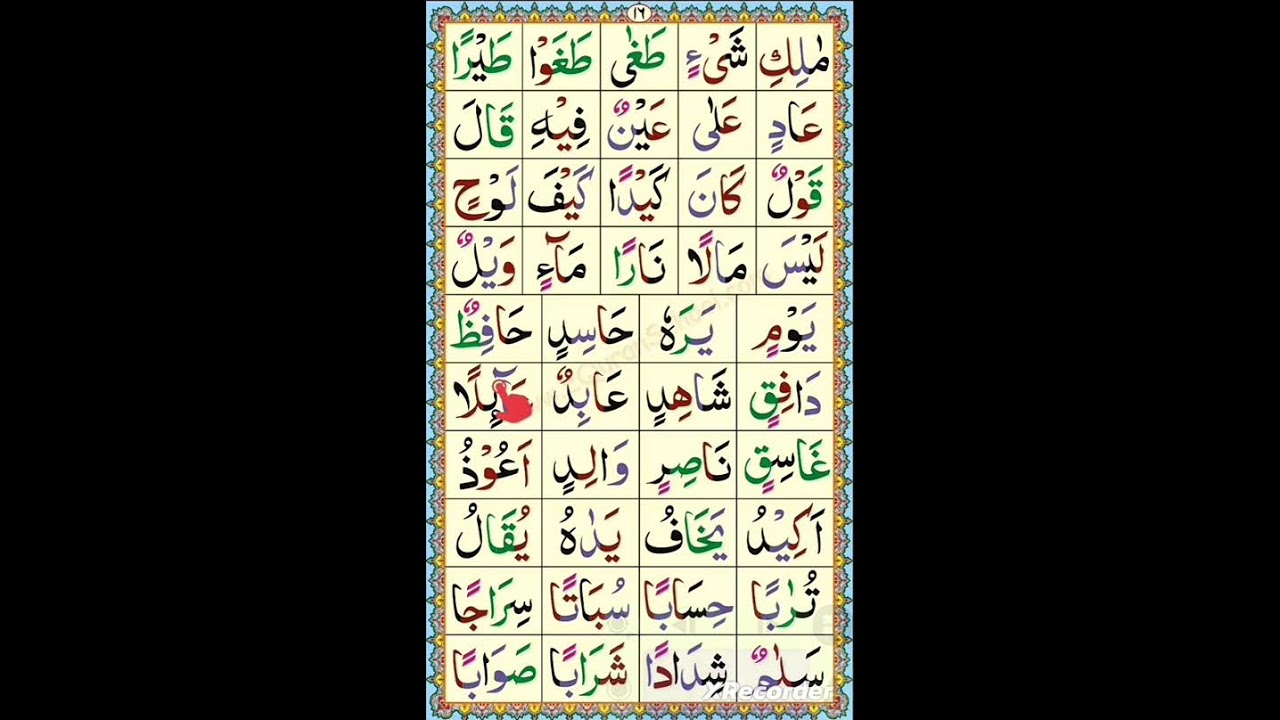 ١٦
مٰلِكِ شَیْءٍ طَغٰی طَغَوْا طَيْرًا
عَادٍ عَلٰی عَيْنٌ فِيْهِ قَالَ
قَوْلٌ كَانَ كَيْدًا كَيْفَ لَوْحٍ
لَيْسَ مَالًا نَارًا مَآءٍ وَيْلٌ
يَوْمٍ يَرَهٗ حَاسِدٍ حَافِظٌ
دَافِقٍ شَاهِدٍ عَابِدٌ
غَاسِقٍ نَاصِرٍ وَالِدٍ اَعُوْذُ
اَكِيْدُ يَخَافُ يَدٰهُ يُقَالُ
تُرٰبًا حِسَابًا سُبَاتًا سِرَاجًا
سَلٰمٌ شِدَادًا شَرَابًا صَوَابًا
XRecorder